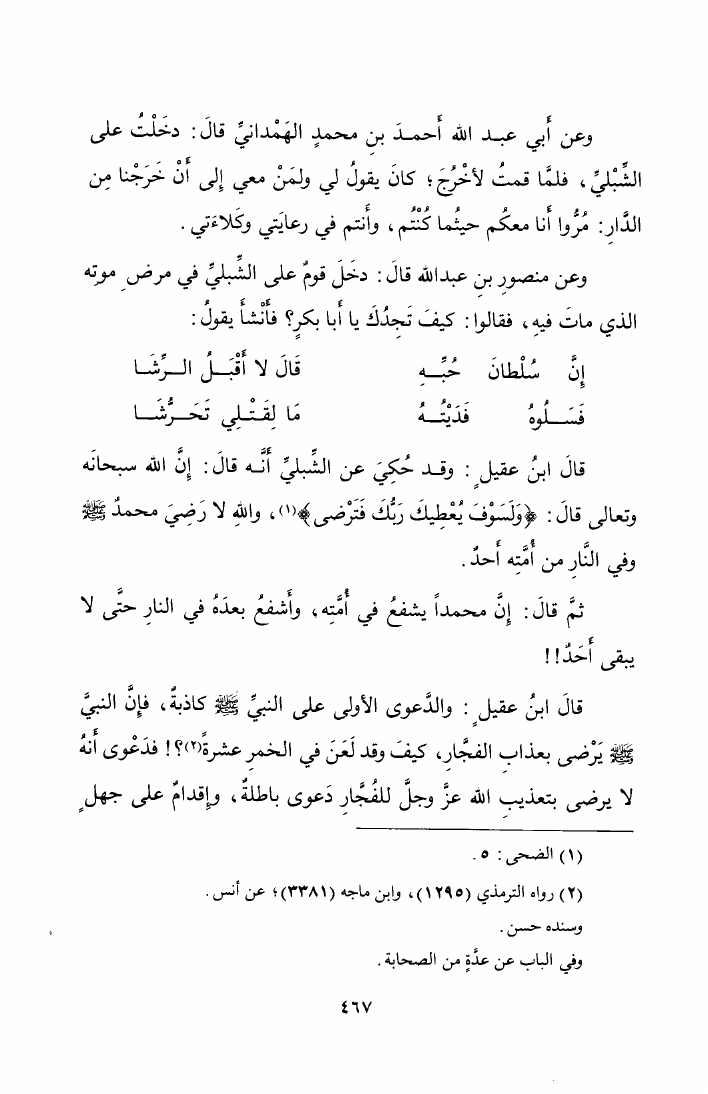 وعن أبي عبـد الله أحمـدَ بنِ محمدٍ الهَمْدانيِّ قالَ: دخَلْتُ على
الشِّبْليِّ، فلمَّا قمتُ لأخْرُجَ؛ كانَ يقولُ لي ولمَنْ معي إلى أنْ خَرَجْنا مِن
الدَّارِ: مُرُّوا أنا معكُم حيثُما كُنْتُم، وأنتم في رعايَتي وكَلاءَتي.
وعن منصورِ بنِ عبدالله قالَ: دخَلَ قومٌ على الشِّبليِّ في مرضِ موتِه
الذي ماتَ فيهِ، فقالوا: كيفَ تَجِدُكَ يا أبا بكرٍ؟ فأنْشأ يقولُ:
إِنَّ سُلْطانَ حُبِّـــهِ قَالَ لا أقْبَـلُ الـرِّشَـا
فَسَـــلُوهُ فَدَيْتُـــهُ مَا لِقَتْـلِي تَحَـرُّشَـا
قالَ ابنُ عقيلٍ: وقـد حُكِيَ عن الشِّبليِّ أنَّـه قالَ: إنَّ الله سبحانَه
وتعالى قالَ: ﴿وَلَسَوْفَ يُعْطِيكَ رَبُّكَ فَتَرْضى﴾(١)، واللهِ لا رَضِيَ محمدٌ ﷺ
وفي النَّارِ من أُمَّتِه أحدٌ.
ثمَّ قالَ: إنَّ محمداً يشفعُ في أُمَّتِه، وأشفعُ بعدَهُ في النارِ حتَّى لا
يبقى أحَدٌ!!
قالَ ابنُ عقيلٍ: والدَّعوى الأولى على النبيِّ ﷺ كاذبةٌ، فإنَّ النبيَّ
ﷺ يَرْضى بعذابِ الفجَّارِ، كيفَ وقد لَعَنَ في الخمرِ عشرةً(٢)؟! فدَعْوى أنهُ
لا يرضى بتعذيبِ الله عزَّ وجلَّ للفُجَّارِ دَعوى باطلةٌ، وإقدامٌ على جهلٍ
(١) الضحى: ٥.
(٢) رواه الترمذي (١٢٩٥)، وابن ماجه (٣٣٨١)؛ عن أنس.
وسنده حسن.
وفي الباب عن عدَّةٍ من الصحابة.
٤٦٧